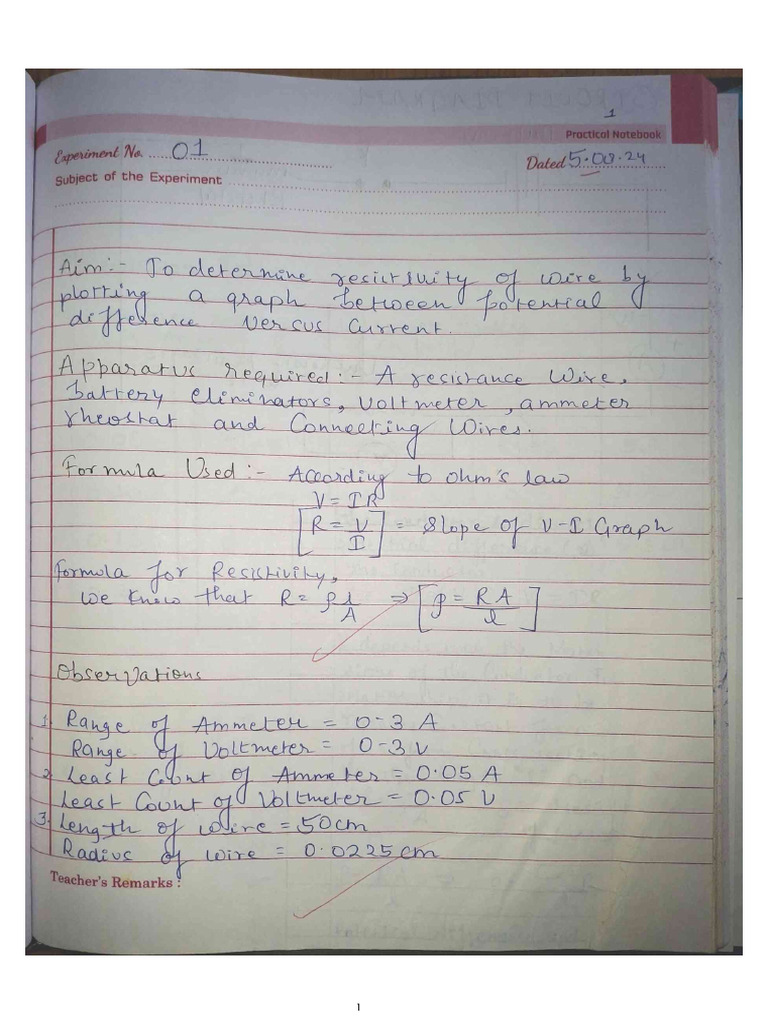 1
Practical Notebook
Experiment No. 01
Dated 5.08.24
Subject of the Experiment
Aim:- To determine resictivity of wire by
plotting a graph between potential
difference versus current.
Apparatus required:- A resistance wire,
battery eliminators, voltmeter, ammeter
rheostat and Connecting Wires.
Formula Used:- According to ohm's law
V = IR
[R = V/I] = Slope of V-I Graph
Formula for Resistivity,
we know that R = ρ l/A ⇒ [ρ = RA/l]
Observations
1. Range of Ammeter = 0-3 A
Range of Voltmeter = 0-3 V
2. Least Count of Ammeter = 0.05 A
Least Count of Voltmeter = 0.05 V
3. Length of wire = 50cm
Radius of wire = 0.0225cm
Teacher's Remarks :
1